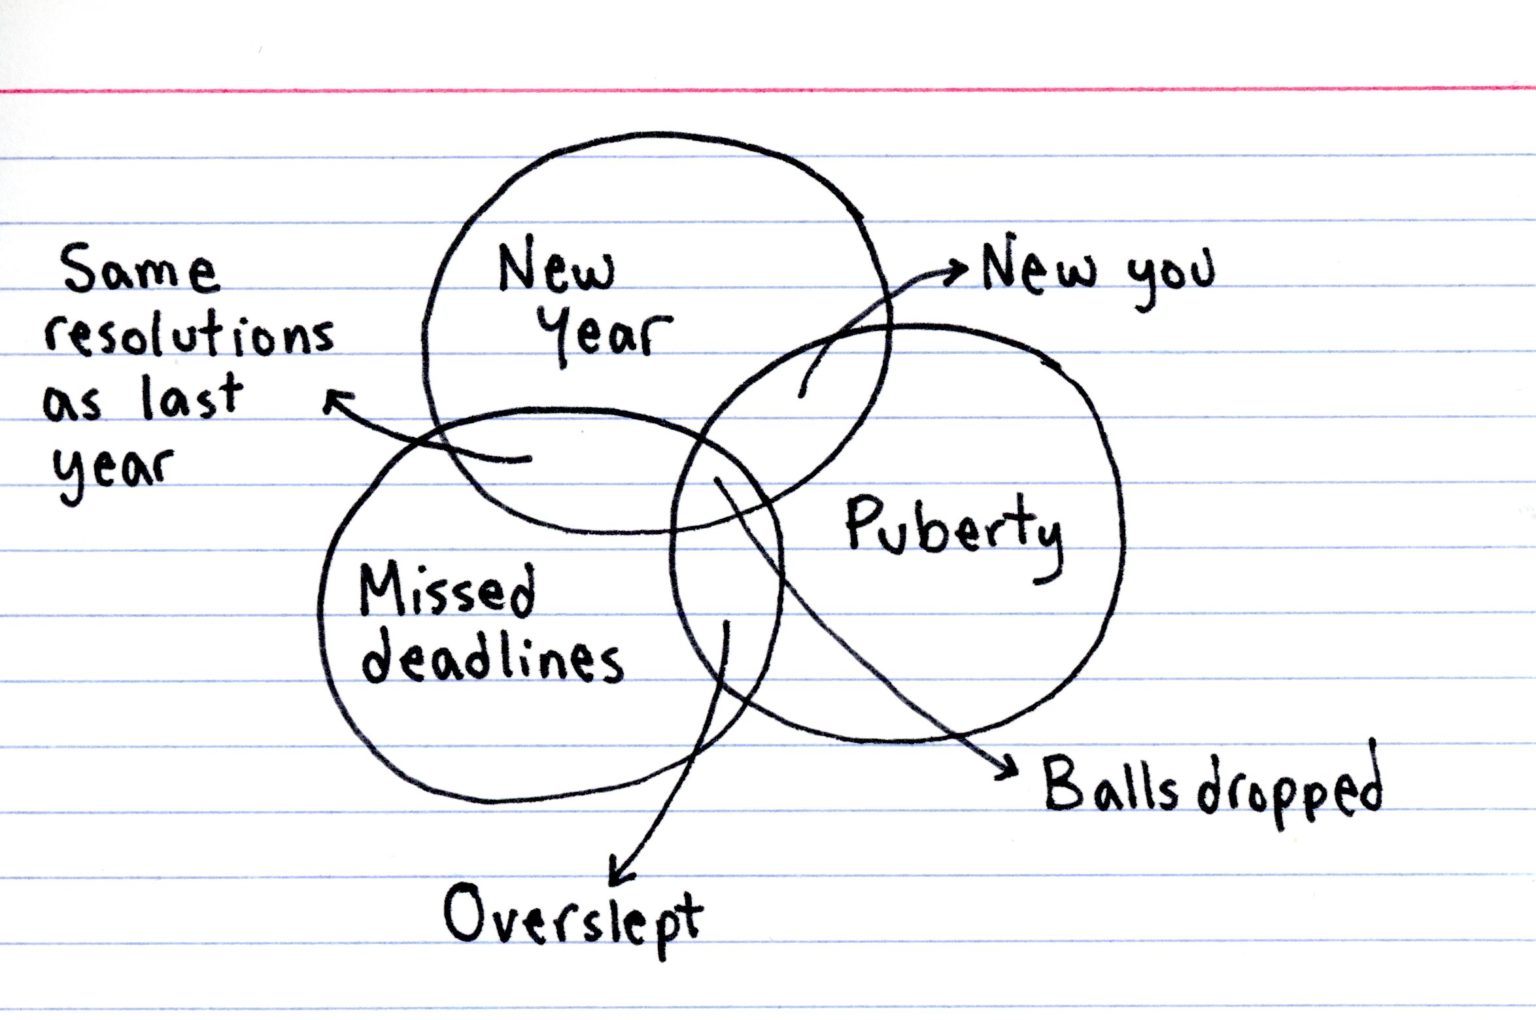 New
Year
Same
resolutions
as last
year
New you
Puberty
Missed
deadlines
Balls dropped
Overslept